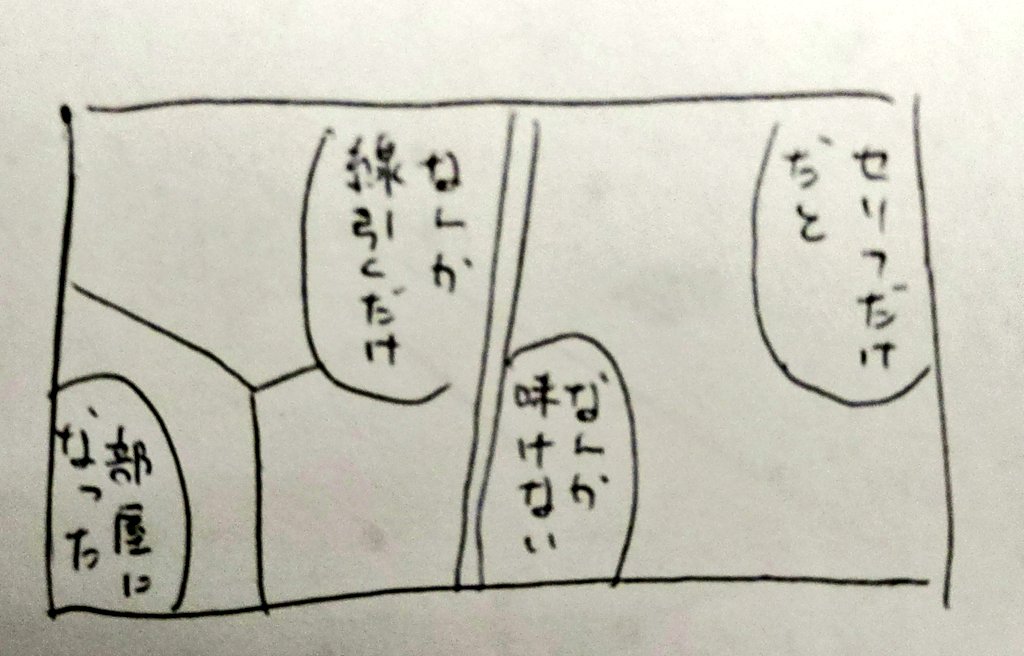 セリフだけ
だと
なんか
味けない
なんか
線引くだけ
部屋に
なった